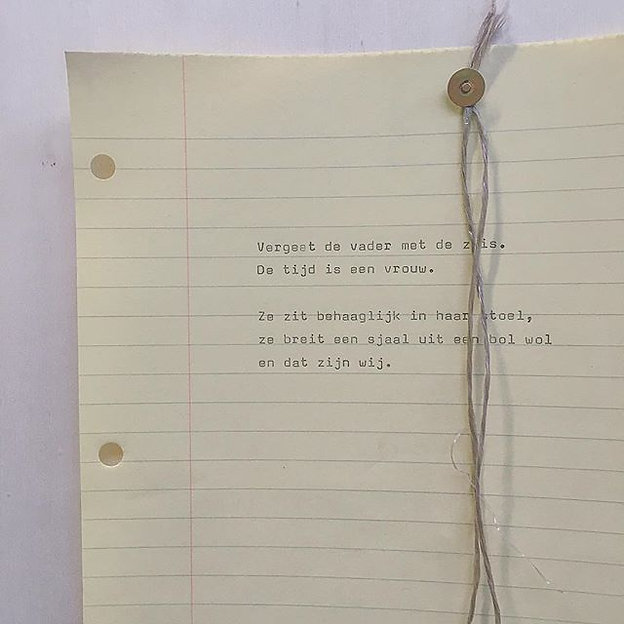 Vergeet de vader met de zeis.
De tijd is een vrouw.
Ze zit behaaglijk in haar stoel,
ze breit een sjaal uit een bol wol
en dat zijn wij.